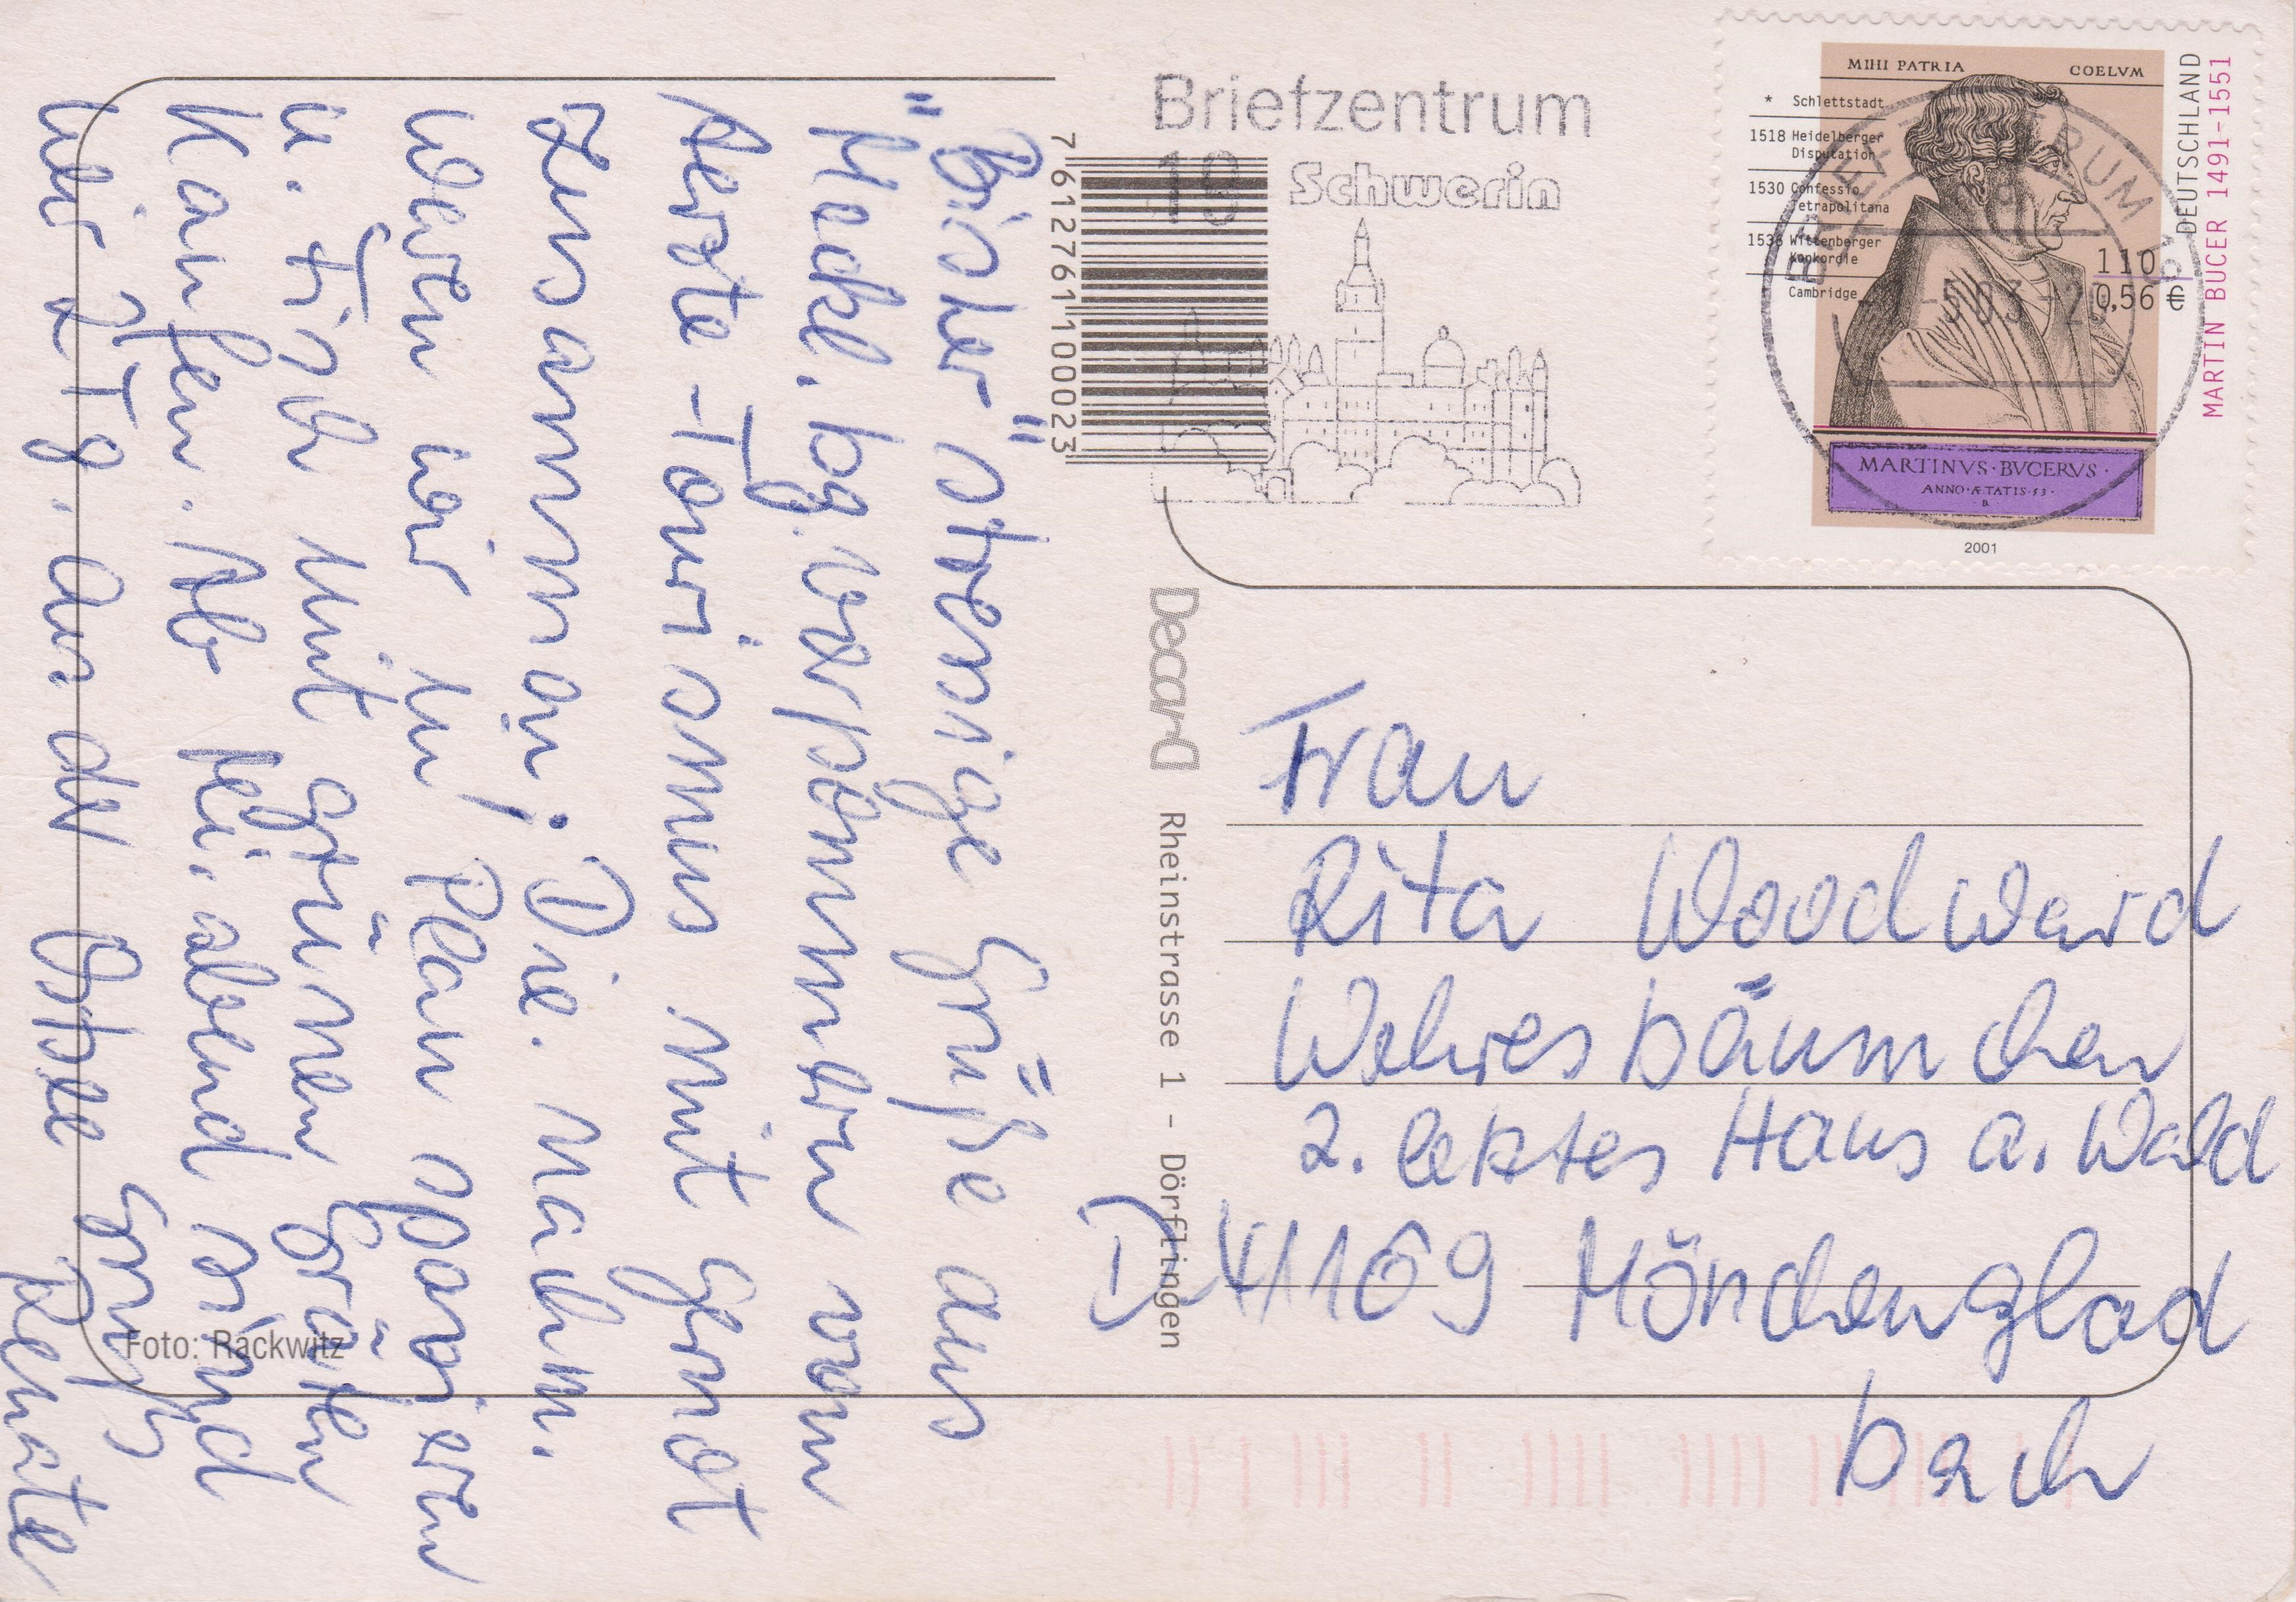 "Bisher" stressige Grüße aus
Meckl. bg. vorpommern vom
Aerzte-Tourismus mit Gerdt
zusammen! Die. nachm.
waren wir in Plau spazieren
u. Fisch mit grünen Gräten
kaufen. Ab frei. abend sind
wir 2 Tg. an der Ostsee Gruß
Renate
Foto: Rackwitz
7 612761 100023
Decard Rheinstrasse 1 - Dörflingen
Briefzentrum
19 Schwerin
MIHI PATRIA COELVM
* Schlettstadt
1518 Heidelberger
Disputation
1530 Confessio
Tetrapolitana
1536 Wittenberger
Konkordie
Cambridge
110
0,56 €
DEUTSCHLAND
MARTIN BUCER 1491-1551
MARTINVS·BVCERVS·
ANNO·ÆTATIS·53·
B
2001
BRIEFZENTRUM
19
-5.03
Frau
Rita Woodward
Wolwesbäumchen
2. letztes Haus a. Wald
41169 Mönchenglad
bach